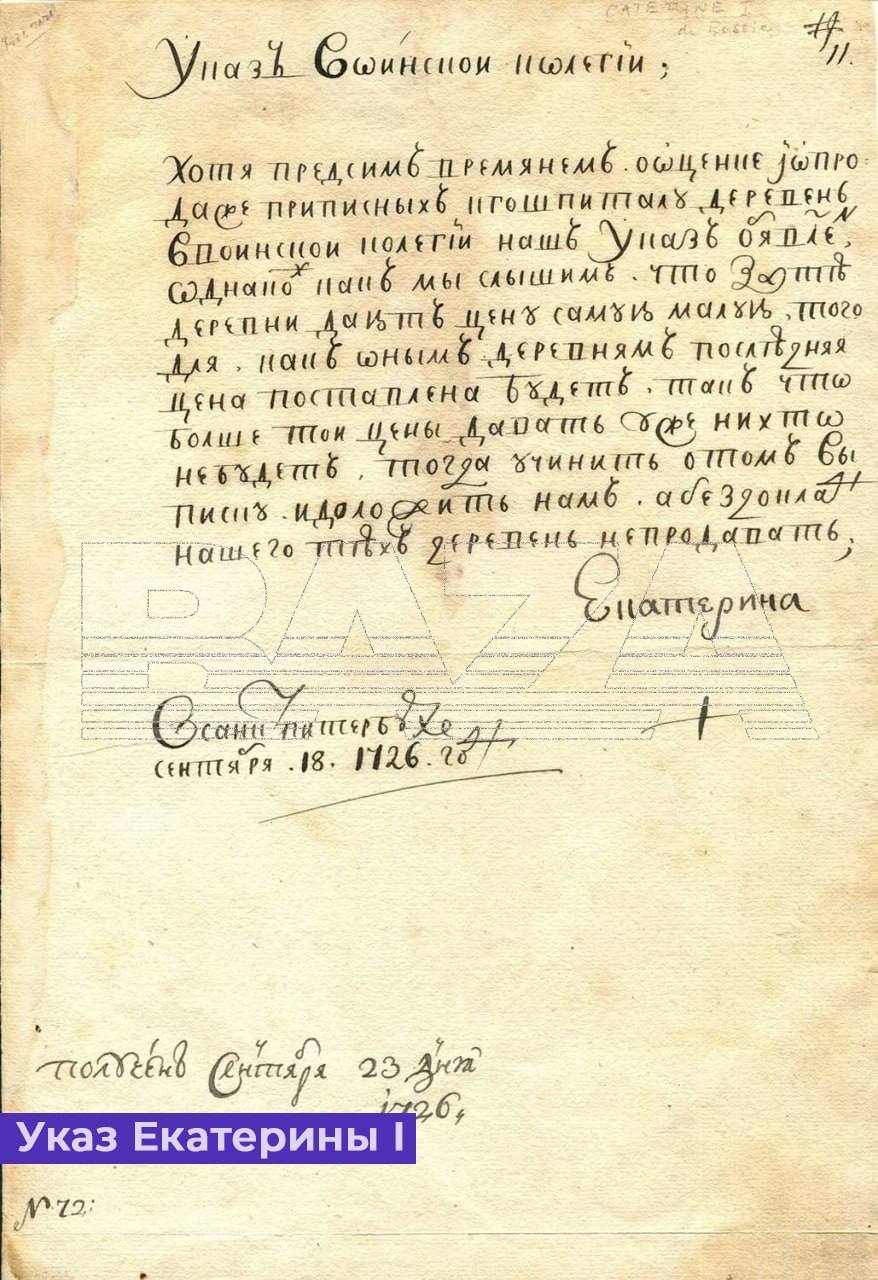 CATERINE I
de Russie
11.
Указъ Воинскои колегіи;
Хотя предсимъ времянемъ. оѡценке іѡпро-
даже приписныхъ кгошпиталу деревень
Ввоинскои колегіи нашъ Указъ обявлен,
ѡднакож какъ мы слышимъ. что Затѣ
деревни даютъ цену самую малую. того
для. какъ ѡнымъ деревнямъ послѣдняя
цена поставлена будетъ. такъ чтѡ
болше тои цены давать уже нихтѡ
небудетъ. тогда учинить отомъ вы
писку. идоложить намъ. абездоклада
нашего тѣхъ деревень непродавать;
Екатерина
BAZA
Всанктпитербурхе
сентября. 18. 1726. год
полученъ Сентября 23 дня
1726,
Указ Екатерины I
№ 72: